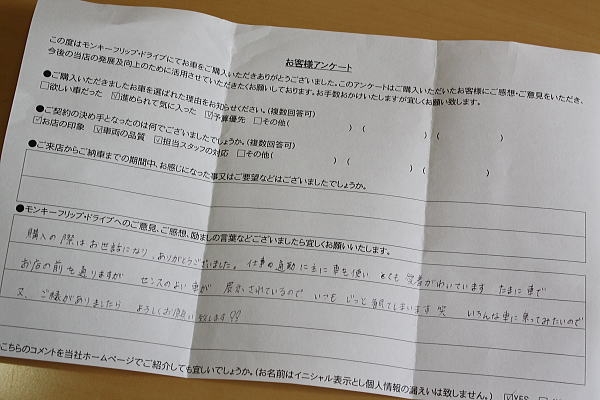 お客様アンケート
この度はモンキーフリップ・ドライブにてお車をご購入いただきありがとうございました。このアンケートはご購入いただいたお客様にご感想・ご意見をいただき、
今後の当店の発展及向上のために活用させていただきたくお願いしております。お手数おかけいたしますが宜しくお願い致します。
●ご購入いただきましたお車を選ばれた理由をお知らせください。(複数回答可)
□欲しい車だった ☑進められて気に入った ☑予算優先 □その他( ) ( ) ( )
●ご契約の決め手となったのは何でございましたでしょうか。(複数回答可)
☑お店の印象 ☑車両の品質 ☑担当スタッフの対応 □その他( ) ( ) ( )
●ご来店からご納車までの期間中、お感じになった事又はご要望などはございましたでしょうか。
●モンキーフリップ・ドライブへのご意見、ご感想、励ましの言葉などございましたら宜しくお願いいたします。
購入の際はお世話になり、ありがとうございました。仕事の通勤に主に車を使い とても愛着がわいています たまに車で
お店の前を通りますが センスのよい車が 展示されているので いつも じっと観てしまいます 笑 いろんな車に乗ってみたいので
又、ご縁がありましたら よろしくお願い致します!!
こちらのコメントを当社ホームページでご紹介しても宜しいでしょうか。(お名前はイニシャル表示とし個人情報の漏えいは致しません。) ☑YES